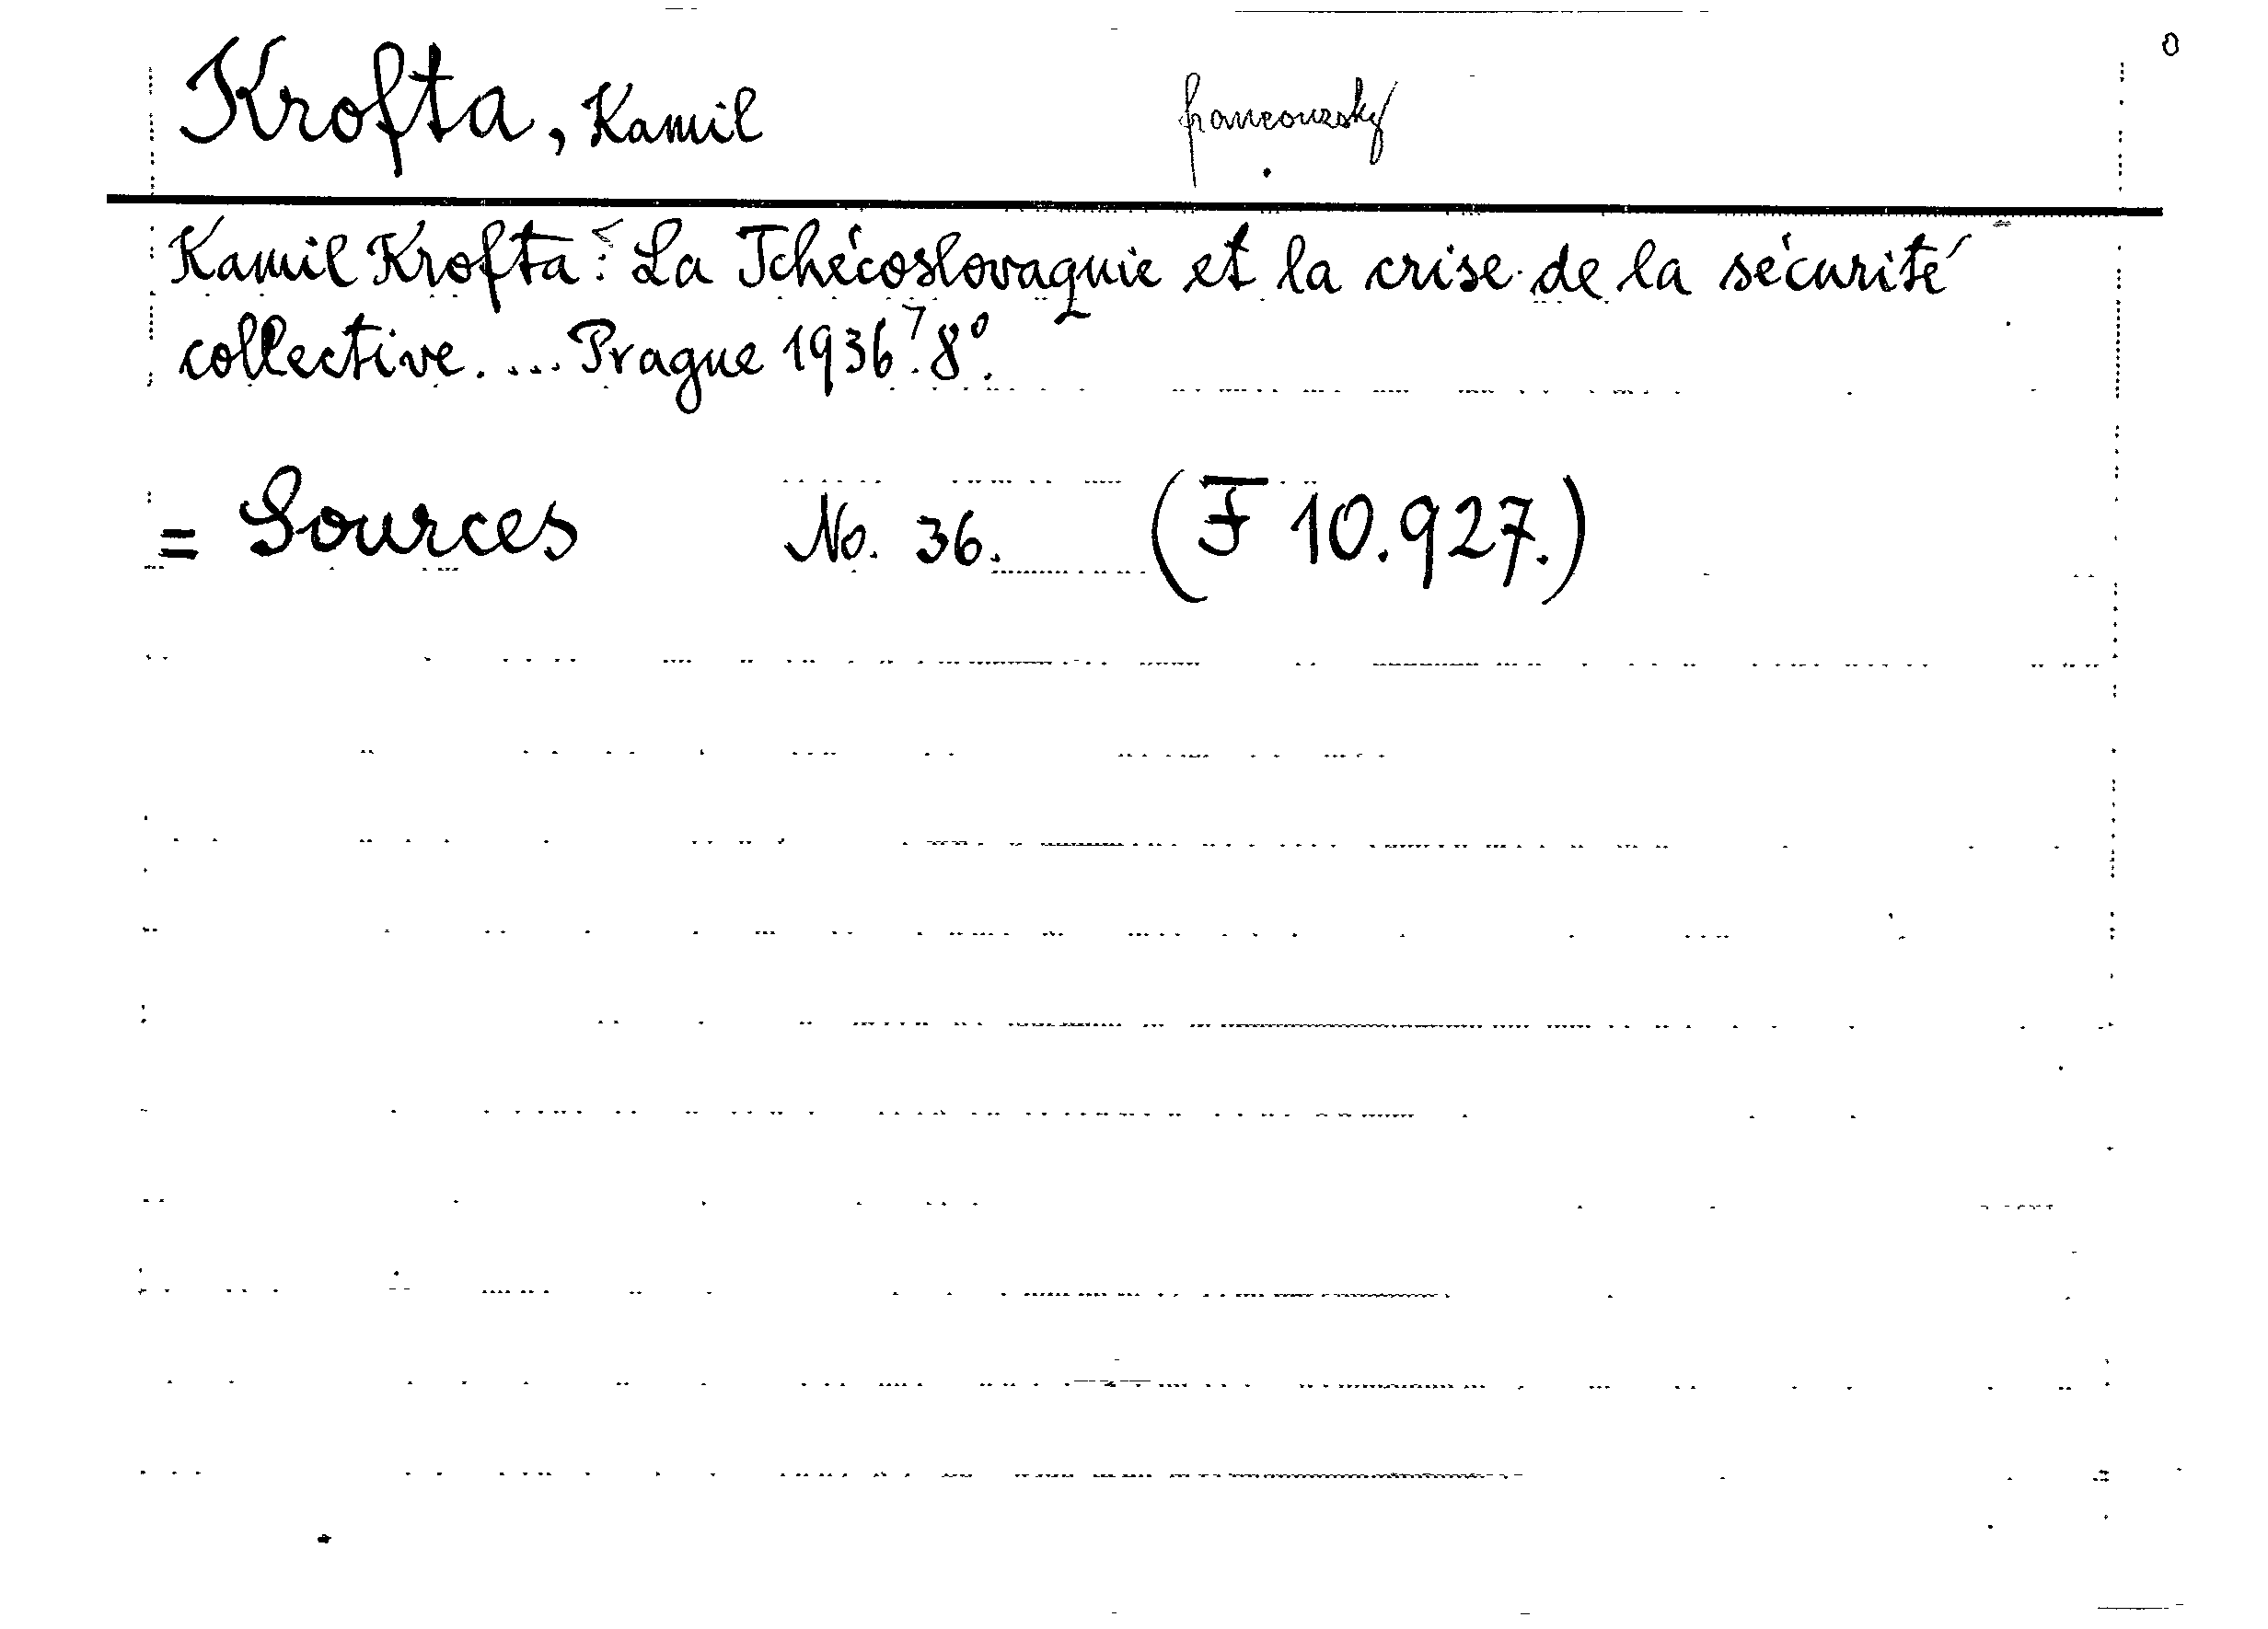 Krofta, Kamil francouzsky
Kamil Krofta: La Tchécoslovaquie et la crise de la sécurité
collective. ... Prague 1936. 8°.
= Sources No. 36. (F 10.927.)